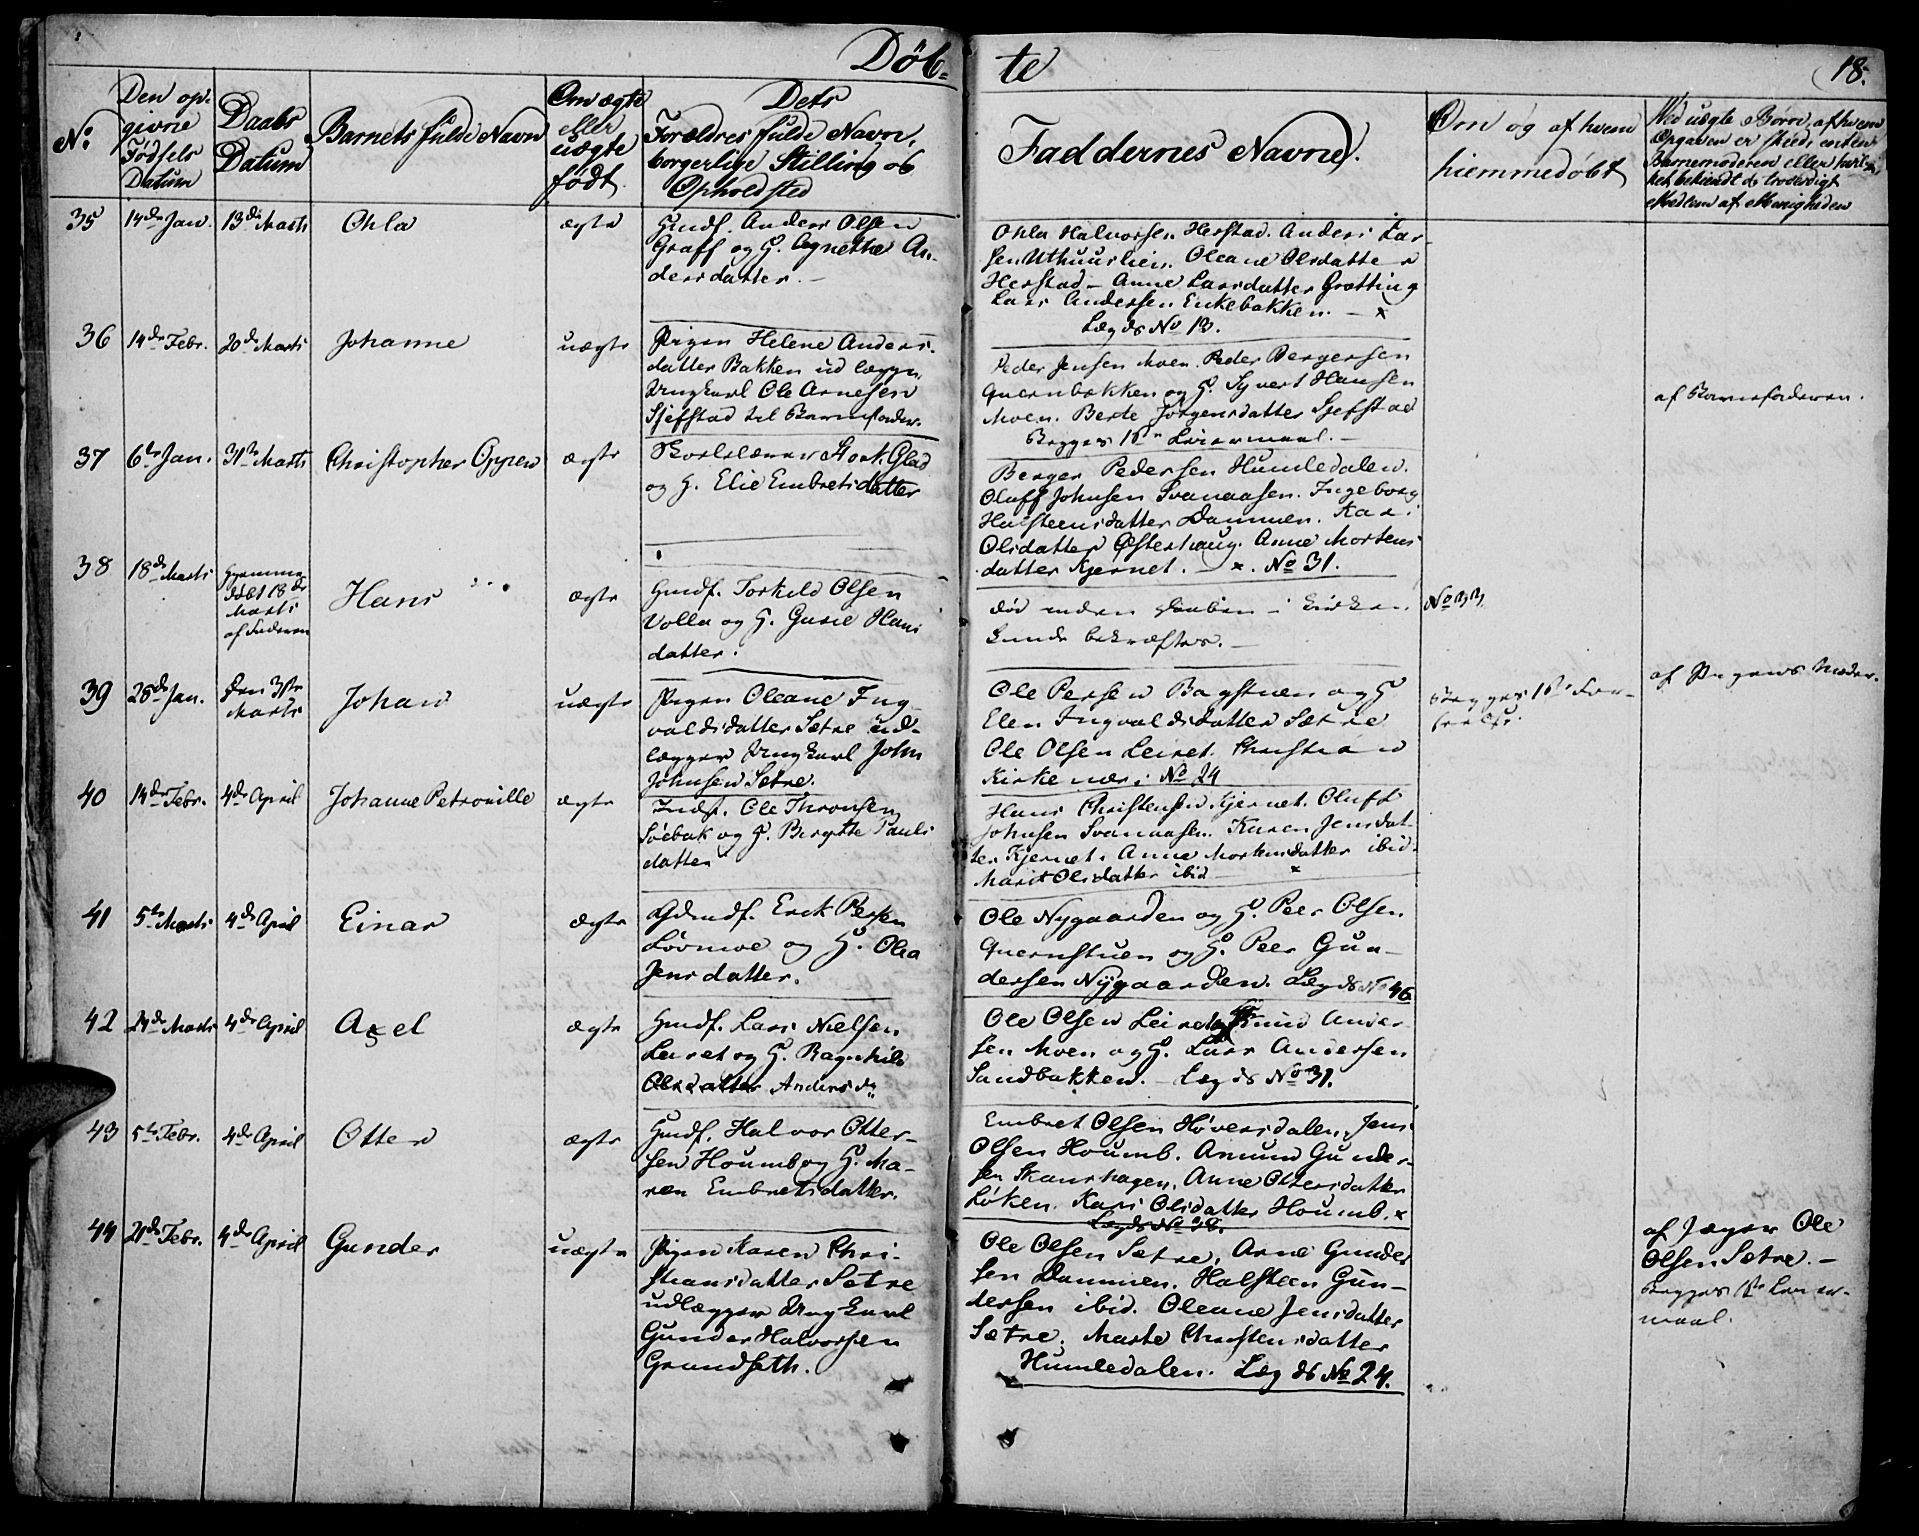 Døb-
te
18.
No
Den op-
givne
Fødsels
Datum
Daabs
Datum
Barnets fulde Navn
Om ægte
eller
uægte
født.
Dets
Forældres fulde Navn,
borgerlige Stilling og
Opholdsted
Faddernes Navne.
Om og af hvem
hiemmedøbt
Ved uægte Børn, af hvem
Opgaven er skeed, enten
Barnemoderen eller hvil-
ket bekiendt og troværdigt
Medlem af Menigheden
35
14de Jan.
13de Marts
Ohla
ægte
Huusf. Anders Olsen
Graff og H. Agnethe An-
dersdatter. —
Ohla Halvorsen Herstad. Anders Lar-
sen Uthuuslien. Oleane Olsdatter
Herstad — Anne Larsdatter Grøtting
Lars Andersen Enkebakken. — x
Lægds No 13.
36
14de Febr.
20de Marts
Johanne
uægte
Pigen Helene Anders-
datter Bakken udlægger
Ungkarl Ole Arnesen
Sjefstad til Barnefader.
Peder Jensen Moen. Peder Bergersen
Quernbækken og H. Syvert Hansen
Moen. Berte Jørgensdatter Sjefstad
Begges 1ste Leiermaal. —
af Barnefaderen.
37
6te Jan.
31te Marts
Christopher Oppen
ægte
Skolelærer Glad
og H. Elie Embretsdatter
Berger Pedersen Humledalen.
Oluff Johnsen Svenaasen. Ingeborg
Halsteensdatter Dammen. Kari
Olsdatter Østerhaug. Anne Mortens-
datter Kjernet. — x. No 31.
38
18de Marts
Hjemme
døbt 18de
Marts
af Faderen
Hans
ægte
Huusf. Torkild Olsen
Volla og H. Gusie Hans
datter.
død inden Daaben i Kirken
kunde bekræftes. —
No 33
39
28de Jan.
Den 31te
Marts
Johan
uægte
Pigen Oleane Ing-
valdsdatter Sætre ud-
lægger Ungkarl John
Johnsen Sætre.
Ole Persen Bagstuen og H.
Elen Ingvaldsdatter Sætre
Ole Olsen Leiret. Christian
Kirkenær; No 24
Begges 1ste For-
seelse.
af Pigens Moder.
40
14de Febr.
4de April
Johanne Petronille
ægte
Indf. Ole Thronsen
Søebak og H. Bergitte Pauls
datter
Hans Christensen Kjernet. Oluff
Johnsen Svenaasen. Karen Jensdat-
ter Kjernet. Anne Mortensdatter ibid.
Marit Olsdatter ibid x
41
5te Marts
4de April
Einar
ægte
Gdmdf. Erck Persen
Løvmoe og H. Olea
Jensdatter.
Ole Nygaarden og H. Peer Olsen
Quernstuen og H. Peer Gun-
dersen Nygaarden. Lægds No 46.
42
24de Marts
4de April
Axel
ægte
Huusf. Lars Nielsen
Leiret og H. Ragnhild
Olsdatter Anders dr.
Ole Olsen Leiret og Knud Ander-
sen Moen og H. Lars Andersen
Sandbakken. — Lægds No 31.
43
5te Febr.
4de April
Otter
ægte
Huusf. Halvor Otter-
sen Houmb og H. Ma-
ren Embretsdatter.
Embret Olsen Høversdalen. Jens
Olsen Houmb. Amund Gunder-
sen Skaurhagen. Anne Ottersdatter
Løken. Kari Olsdatter Houmb. x
Lægds No 38.
44
21de Febr.
4de April
Gunder
uægte
Pigen Karen Chri-
stiansdatter Sætre
udlægger Ungkarl
Gunder Halvorsen
Grundseth.
Ole Olsen Sætre. Arne Gunder
sen Dammen. Halsteen Gun-
dersen ibid. Oleane Jensdatter
Sætre. Marte Christensdatter
Humledalen. Lægds No 24.
af Jæger Ole
Olsen Sætre. —
Begges 1ste Leier-
maal.